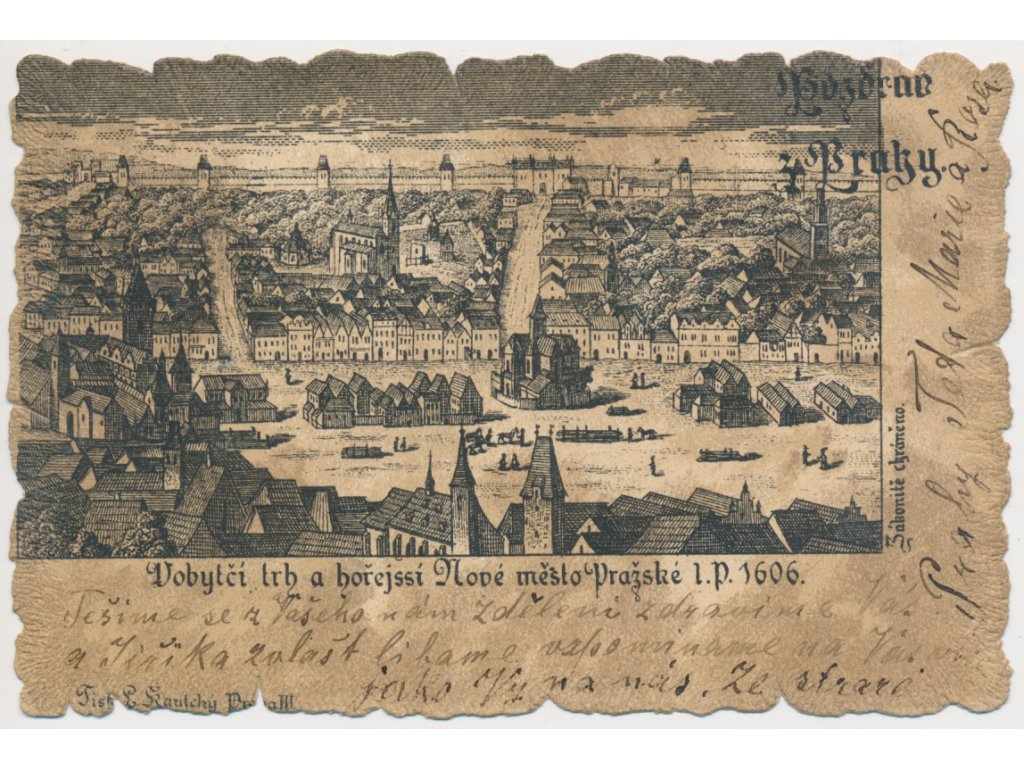 Pozdrav
z Prahy.
Zákonitě chráněno.
Dobytčí trh a hořejssí Nové město Pražské l.P. 1606.
Těšíme se z Vašeho nám zdělení zdravíme Vás
a Jiříka zvlášť líbáme vzpomínáme na Vás
jako Vy na nás. Ze staré
Prahy Teta Marie a Rosa
Tisk Kautcký Praha III